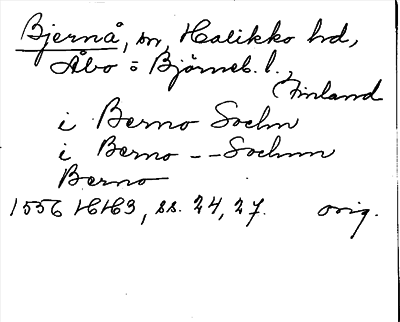 Bjernå, sn, Halikko hd,
Åbo = Björneb. l.,
(Finland
i Berno Sochn
i Berno -- Sochnn
Berno
1556 HH3, ss. 24, 27. orig.